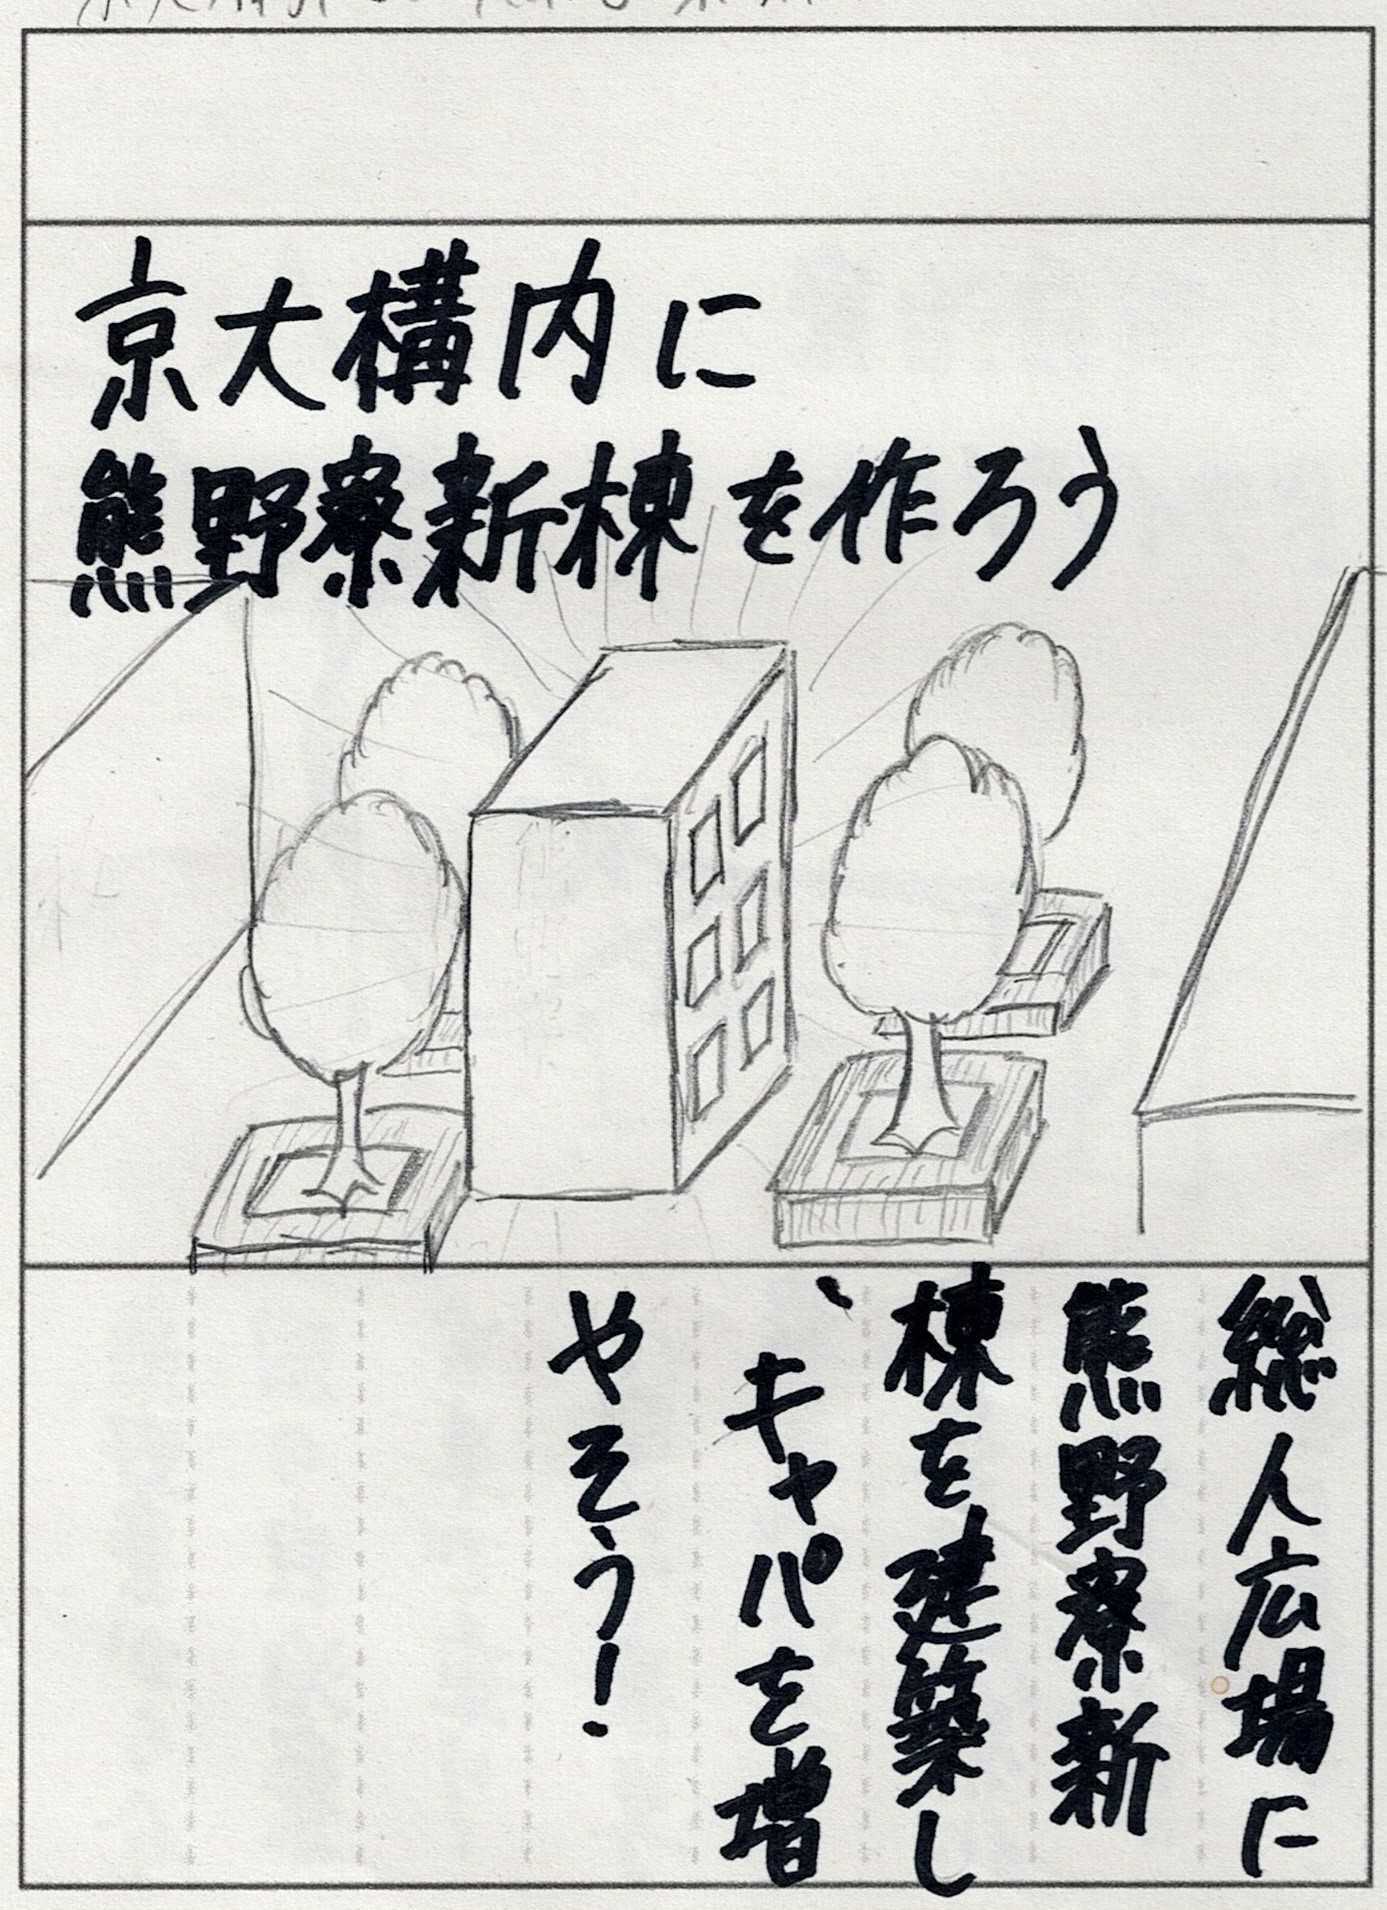 京大構内に
熊野寮新棟を作ろう
総人広場に
熊野寮新
棟を建築し
、キャパを増
やそう！